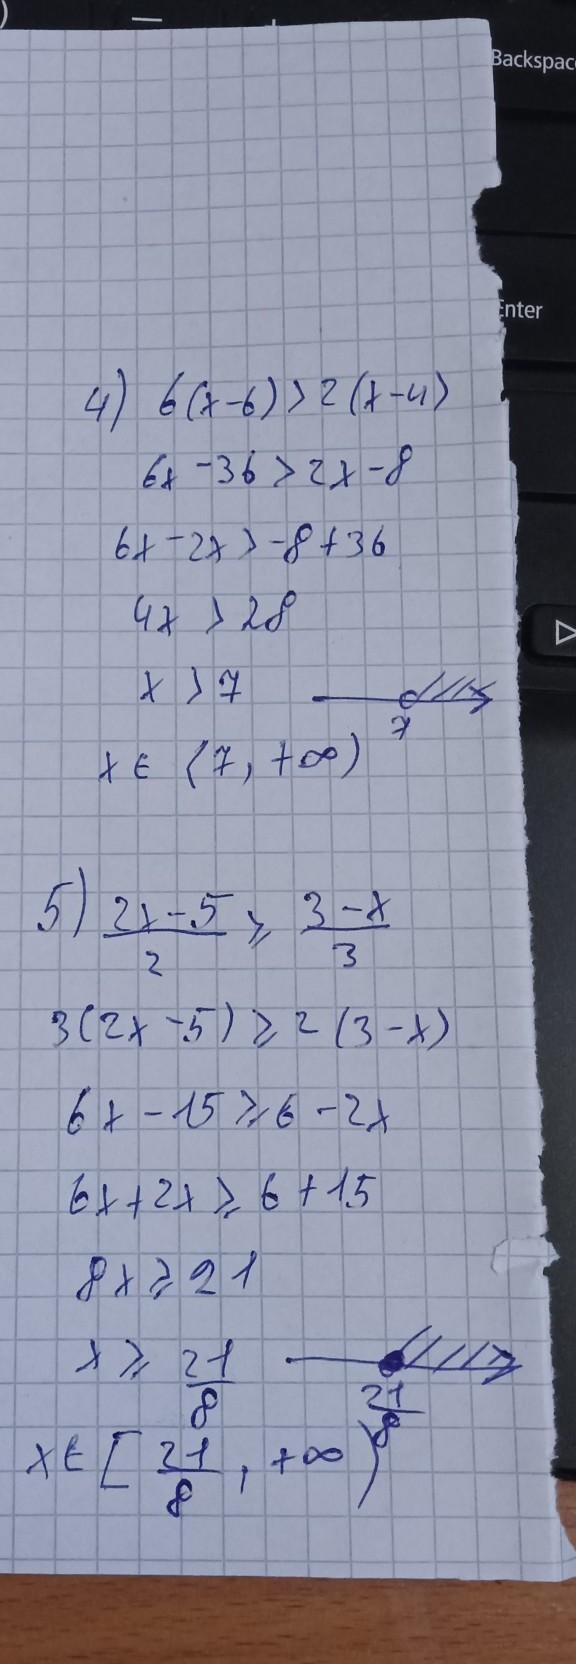 Backspac
Enter
4) 6(x-6)>2(x-4)
6x-36>2x-8
6x-2x>-8+36
4x>28
x>7
7
x∈(7,+∞)
5) \frac{2x-5}{2}≥\frac{3-x}{3}
3(2x-5)≥2(3-x)
6x-15≥6-2x
6x+2x≥6+15
8x≥21
x≥\frac{21}{8}
\frac{21}{8}
x∈[\frac{21}{8},+∞)